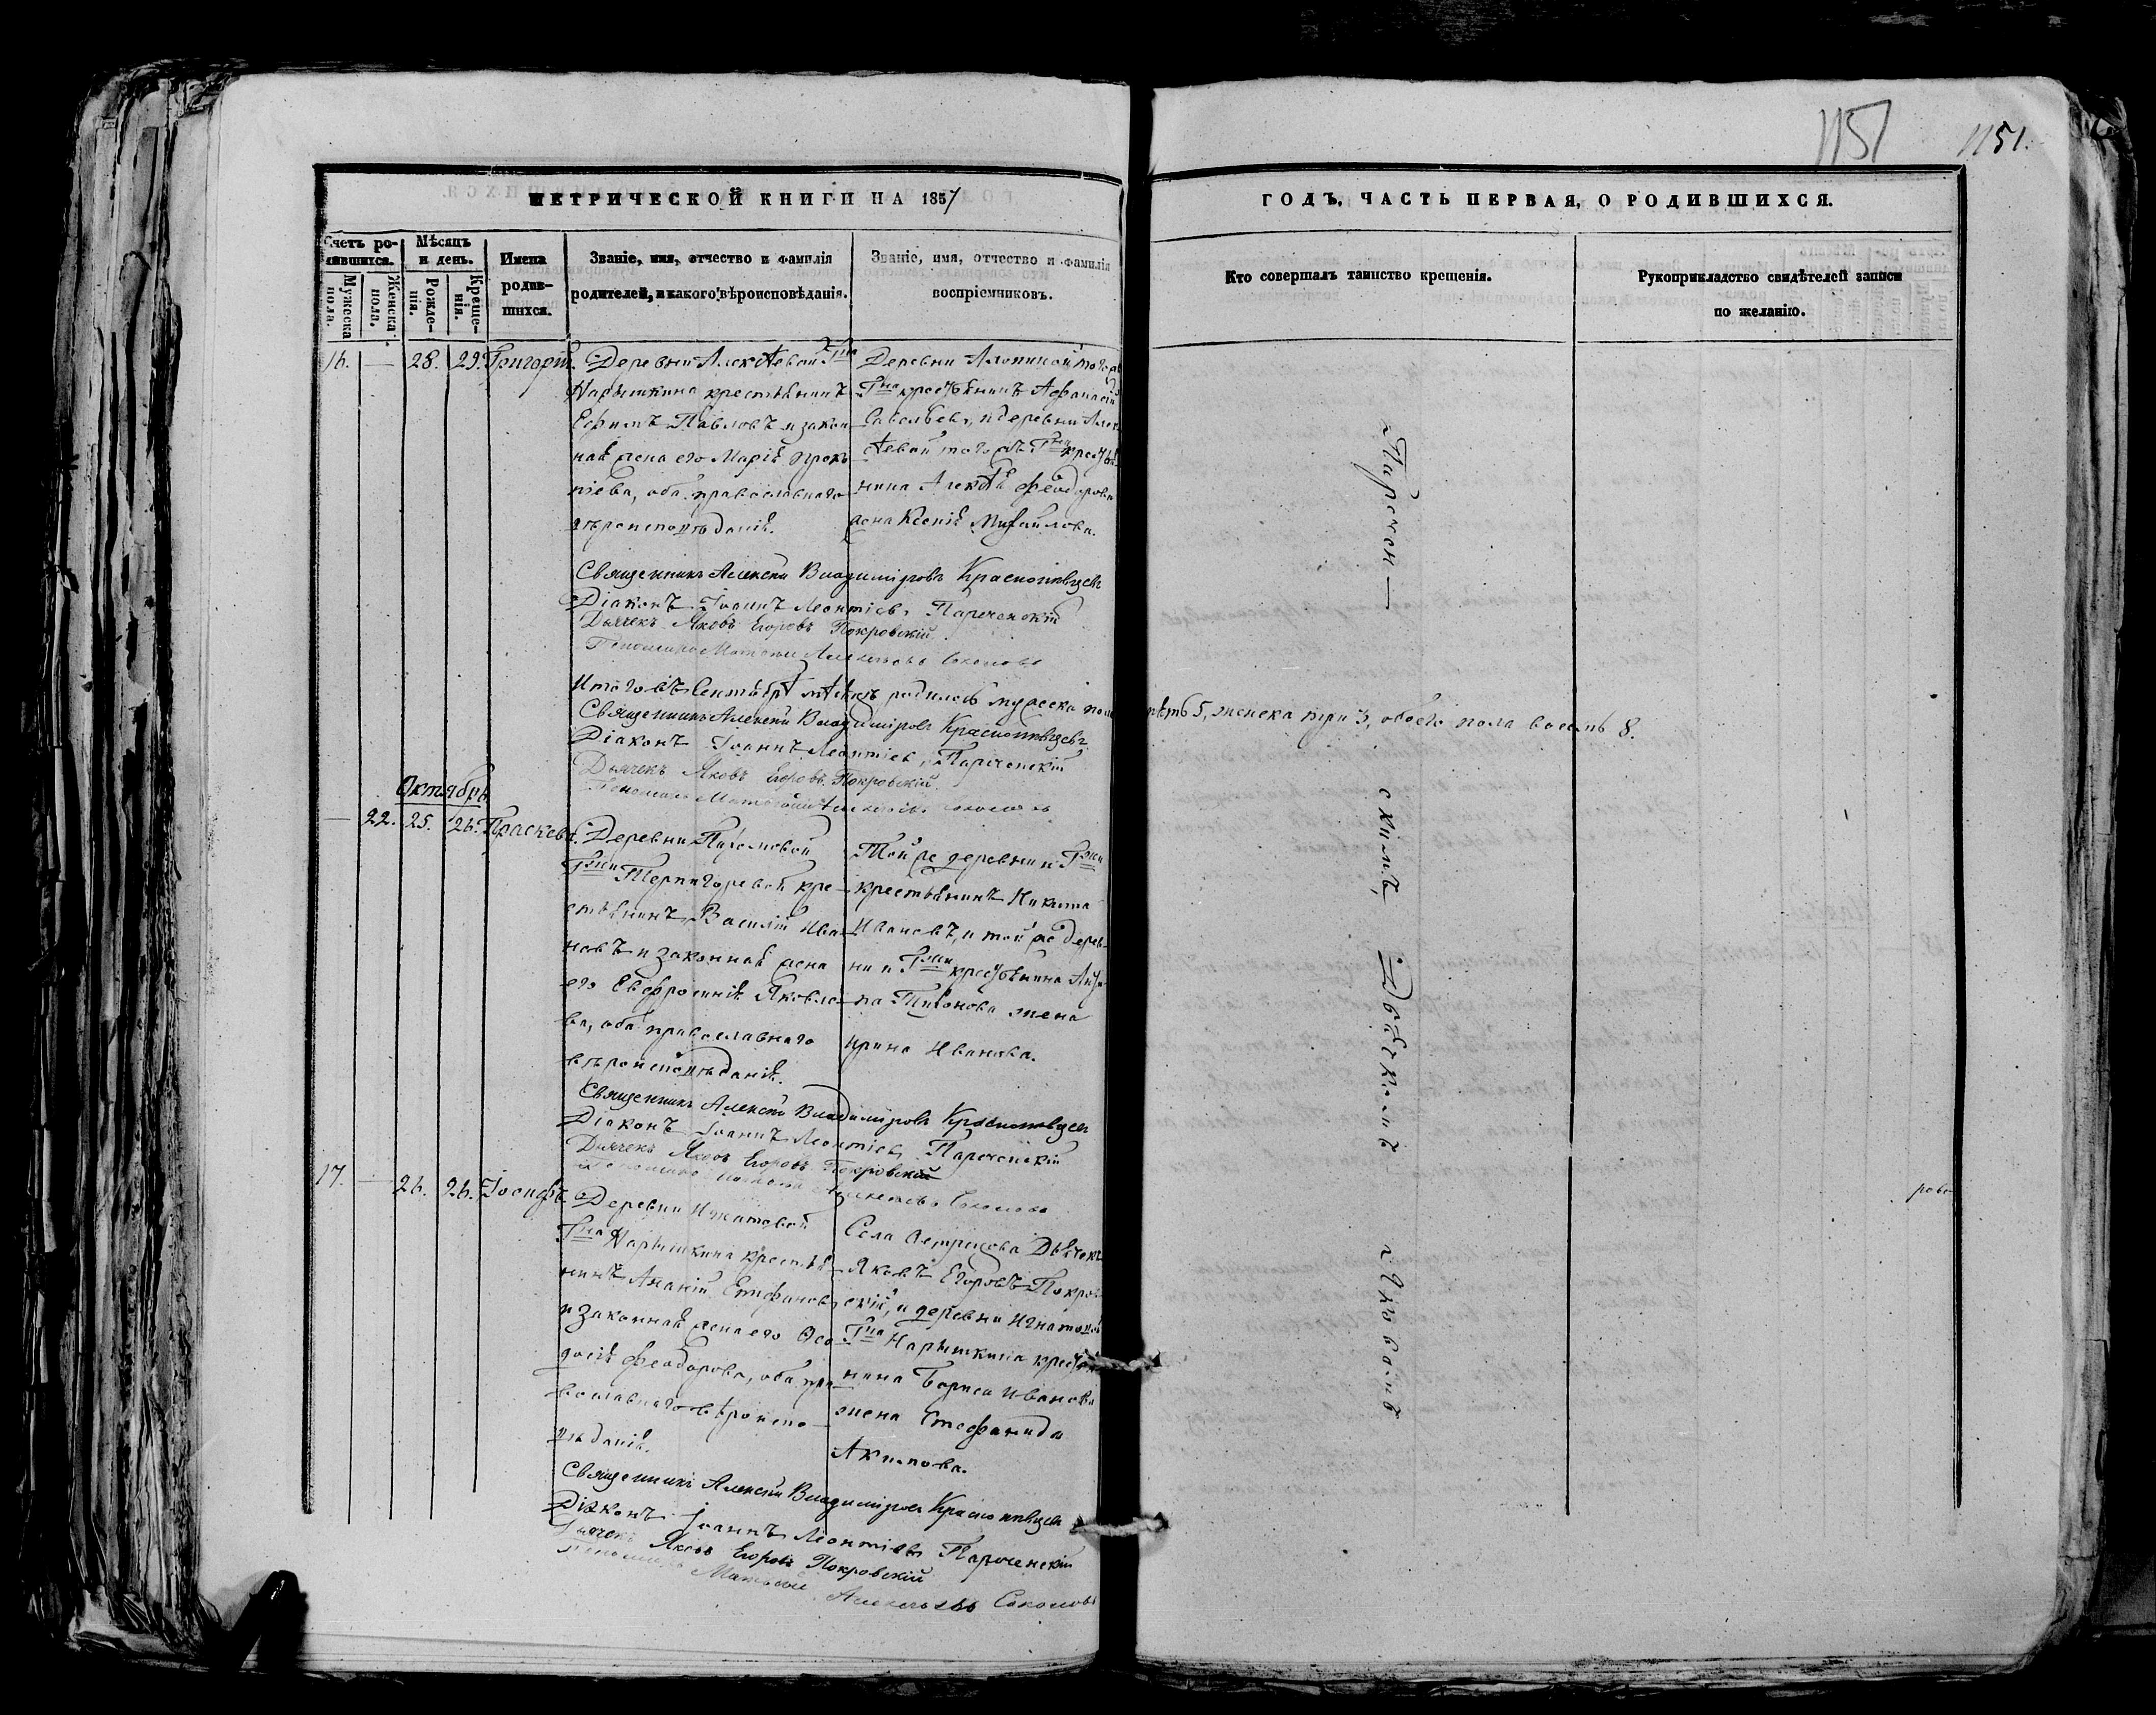 1151 1151.
МЕТРИЧЕСКОЙ КНИГИ НА 1857
ГОДЪ, ЧАСТЬ ПЕРВАЯ, О РОДИВШИХСЯ.
Счетъ родившихся.
Мужеска пола.
Женска пола.
Мѣсяцъ и день.
Рожденія.
Крещенія.
Имена родившихся.
Званіе, имя, отчество и фамилія
родителей, и какого вѣроисповѣданія.
Званіе, имя, отчество и фамилія
воспріемниковъ.
Кто совершалъ таинство крещенія.
Рукоприкладство свидѣтелей записи
по желанію.
16. — 28. 29. Григорій.
Деревни Алексѣевой Гна
Нарышкина крестьянинъ
Ефимъ Павловъ и закон
ная жена его Марія
піева, оба православнаго
вѣроисповѣданія.
Деревни
Гна крестьянинъ Афанасій
Савельевъ, и деревни Алек
сѣевой того жъ Гна крестья
нина Алексѣя Феодорова
жена Ксенія Михайлова.
Священникъ Алексѣй Владиміровъ Краснопѣвцевъ
Діаконъ Іоаннъ Леонтіевъ Пареченскій
Дьячекъ Яковъ Егоровъ Покровскій
Пономарь Матвѣй Алексѣевъ Соколовъ
Итого въ Сентябрѣ мѣсяцѣ родилось мужеска пола пять 5, женска три 3, обоего пола восемь 8.
Священникъ Алексѣй Владиміровъ Краснопѣвцевъ
Діаконъ Іоаннъ Леонтіевъ Пареченскій
Дьячекъ Яковъ Егоровъ Покровскій
Пономарь Матвѣй Алексѣевъ Соколовъ
Октябрь
— 22. 25. 26. Праскева.
Деревни Пахомовой
Гжи Терпигоревой кре
стьянинъ Василій Ива
новъ и законная жена
его Евфросинія Яковле
ва, оба православнаго
вѣроисповѣданія.
Той же деревни и Гжи
крестьянинъ Никита
Ивановъ, и той же дерев
ни и Гжи крестьянина
Тихонова жена
Ирина Иванова.
Священникъ Алексѣй Владиміровъ Краснопѣвцевъ
Діаконъ Іоаннъ Леонтіевъ Пареченскій
Дьячекъ Яковъ Егоровъ Покровскій
Пономарь Матвѣй Алексѣевъ Соколовъ
17. — 26. 26. Іосифъ.
Деревни Игнатовой
Гна Нарышкина крестья
нинъ Ананій Епифановъ
и законная жена его Ѳео
досія Феодорова, оба пра
вославнаго вѣроиспо
вѣданія.
Села Ветрицова Дьячекъ
Яковъ Егоровъ Покров
скій, и деревни Игнатовой
Гна Нарышкина крестья
нина Бориса Иванова
жена Стефанида
Акимова.
Священникъ Алексѣй Владиміровъ Краснопѣвцевъ
Діаконъ Іоаннъ Леонтіевъ Пареченскій
Дьячекъ Яковъ Егоровъ Покровскій
Пономарь Матвѣй Алексѣевъ Соколовъ
Паречен—
скимъ
Дьячкомъ